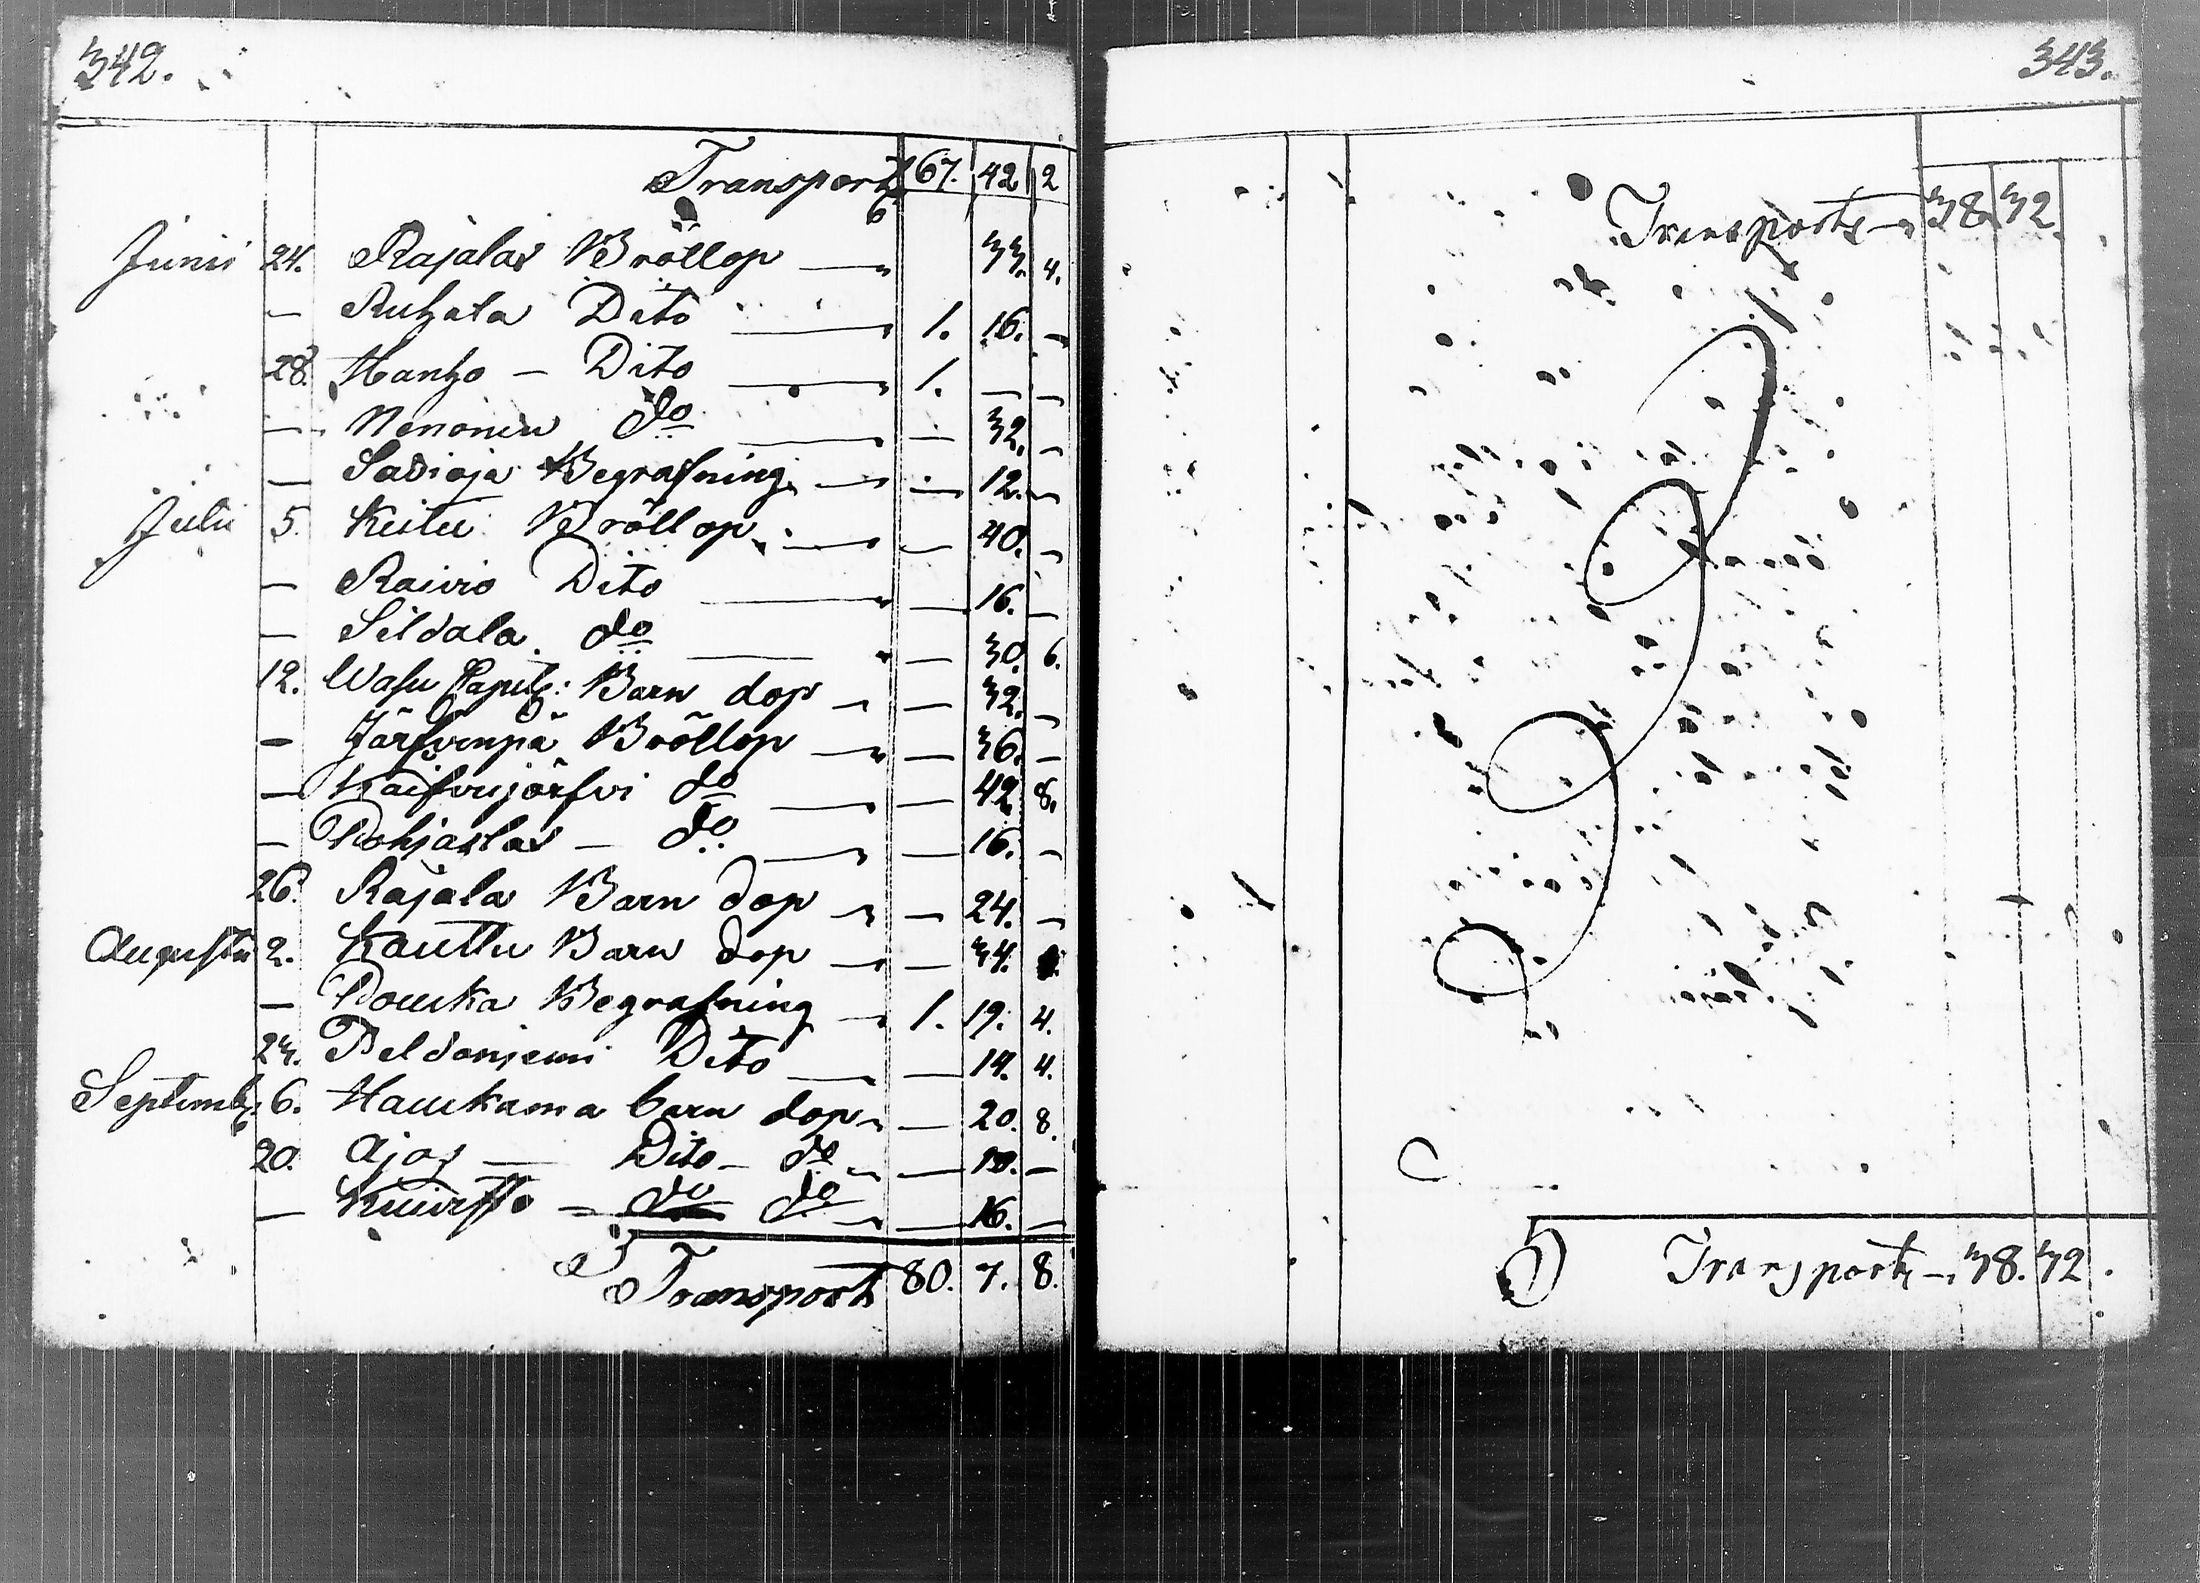 342.
Transport 67. 42 2
Junii 24. Rajalas Bröllop — 33. 4.
— Ruhala Dito — 1. 16. —
28. Hanho — Dito — 1. — —
— Nenonen do — — 32. —
— Sadioja Begrafning — — 12. —
Julii 5. Keitu Bröllop — — 40. —
— Raivio Dito — — 16. —
— Sildala do — — 30. 6.
12. Wasu Barn dop — — 32. —
— Järfvenpä Bröllop — — 36. —
— Kaifvujärfvi do — — 42 8.
— Pohjaslas — do — — 16. —
26. Rajala Barn dop — — 24. —
Augusti 2. Kauttu Barn dop — — 34.
— Pouska Begrafning — 1. 19. 4.
23. Peldoniemi Dito — — 14. 4.
Septembr 6. Haukama barn dop — — 20. 8.
20. Ajos — Dito — do — — 10. —
— — do do — — 16. —
Transport 80. 7. 8.
343.
Transport — 38. 32.
Transport — 38. 32.